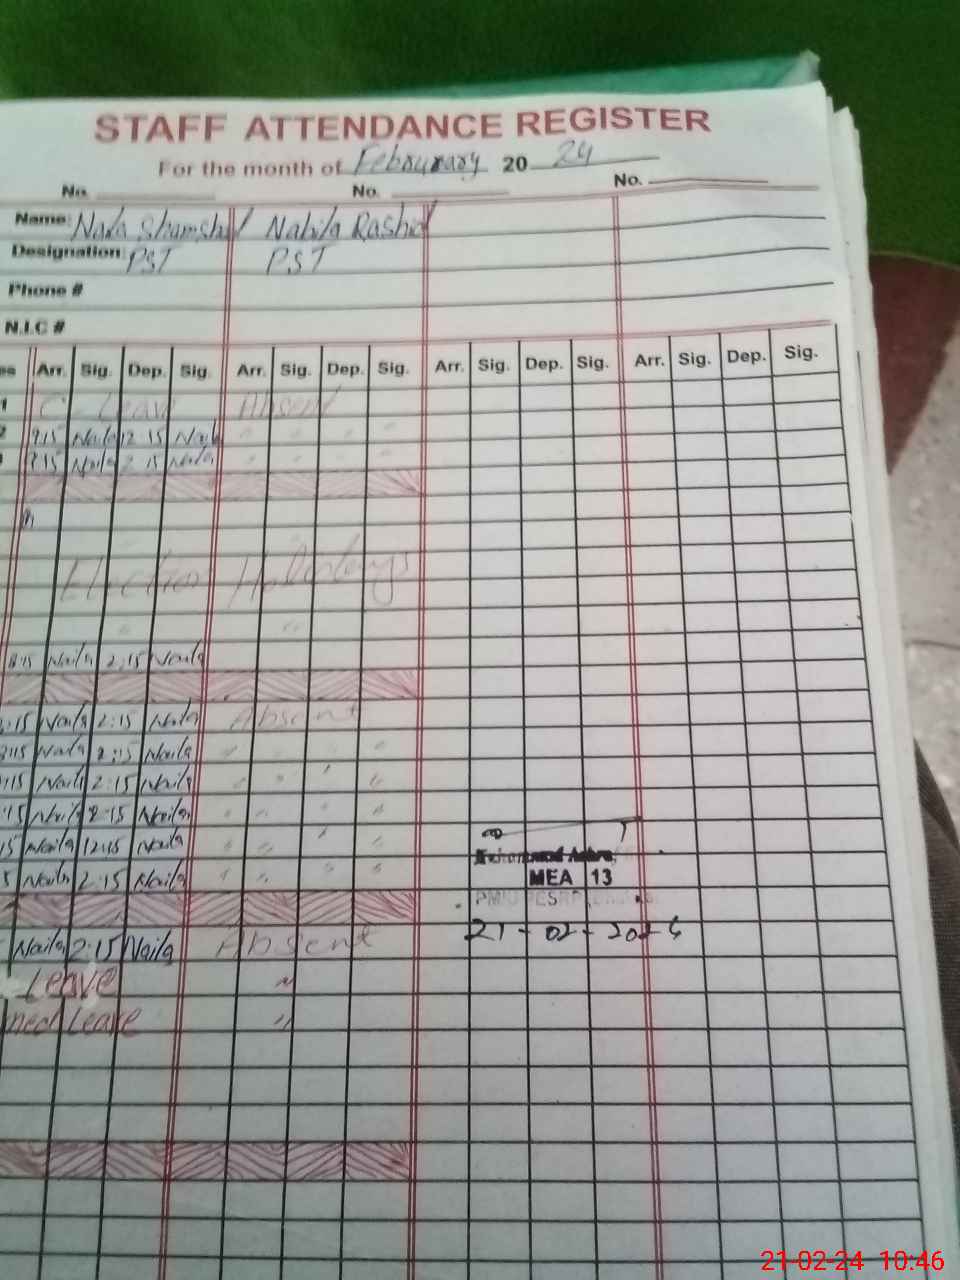 STAFF ATTENDANCE REGISTER
For the month of Februrary 20 24
No. No. No.
Name: Naila Shamshad Nabila Rashid
Designation: PST PST
Phone #
N.I.C #
es Arr. Sig. Dep. Sig. Arr. Sig. Dep. Sig. Arr. Sig. Dep. Sig. Arr. Sig. Dep. Sig.
1 C. Leave Absent
2 9:15 Naila 12 15 Naila " " " "
Naila 2 15 Naila " " " "
Election Holidays
" "
8:15 Naila 2:15 Naila
:15 Naila 2:15 Naila Absent
:15 Naila 2:15 Naila " " " "
:15 Naila 2:15 Naila " " " "
:15 Naila 2:15 Naila " " " "
15 Naila 12:15 Naila " " " "
5 Naila 2:15 Naila " " " "
MEA 13
Naila 2:15 Naila Absent
21-02-2024
Leave "
med Leave "
21-02-24 10:46